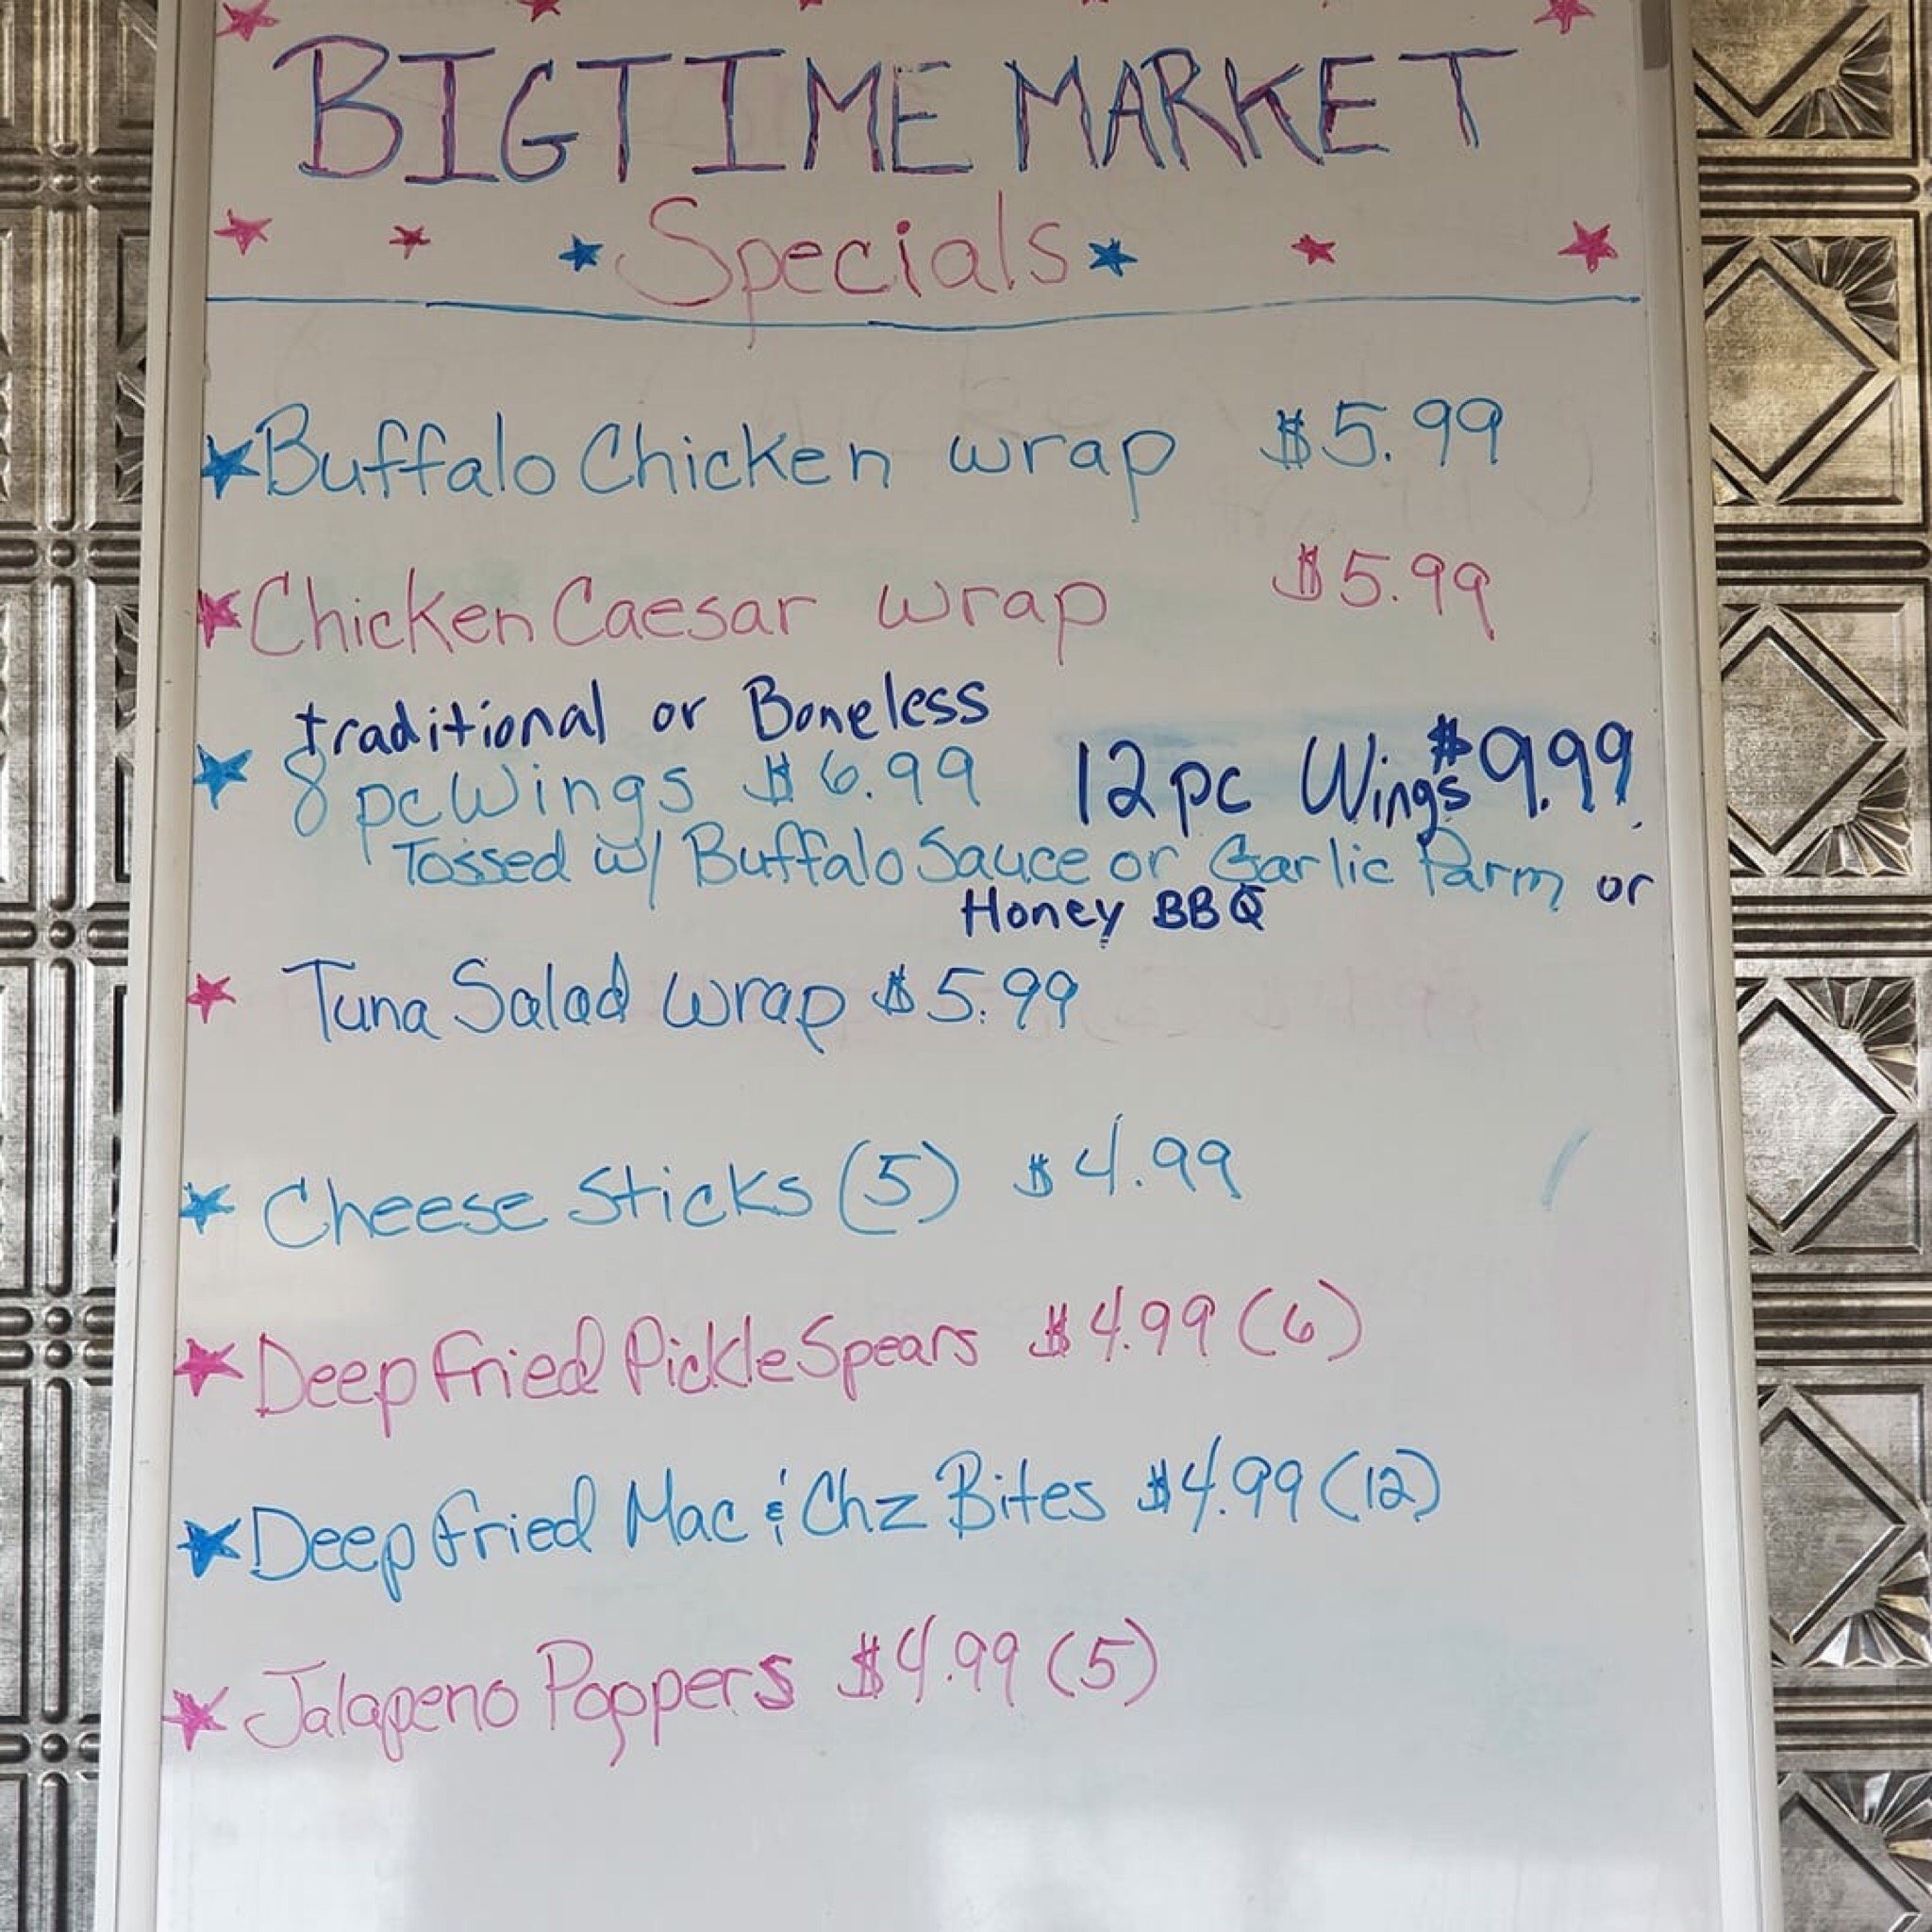 BIGTIME MARKET
Specials
Buffalo Chicken wrap $5.99
Chicken Caesar wrap $5.99
traditional or Boneless
8 pc Wings $6.99 12 pc Wings $9.99
Tossed w/ Buffalo Sauce or Garlic Parm or
Honey BBQ
Tuna Salad wrap $5.99
Cheese Sticks (5) $4.99
Deep Fried Pickle Spears $4.99 (6)
Deep Fried Mac & Chz Bites $4.99 (12)
Jalapeno Poppers $4.99 (5)